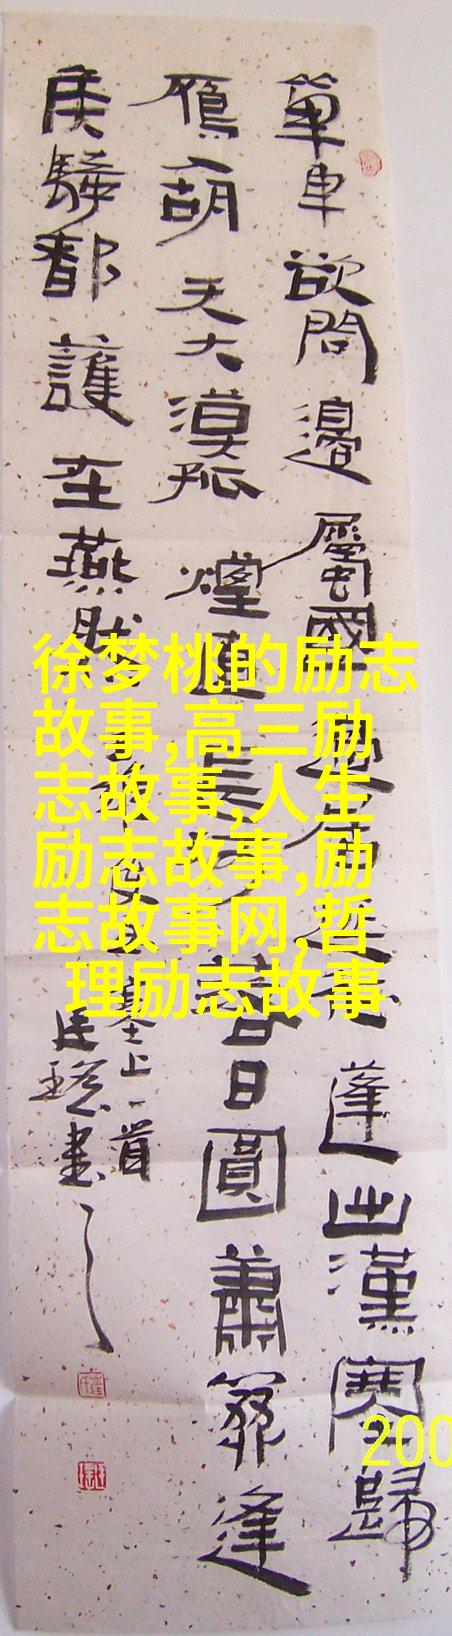 單車欲問邊屬國過居延蓬出漢塞歸
鴈入胡天大漠孤煙直長河落日圓蕭關逢
候騎都護在燕然
使至塞上一首
書
徐梦桃的励志
故事,高三励
志故事,人生
励志故事,励
志故事网,哲
理励志故事
200